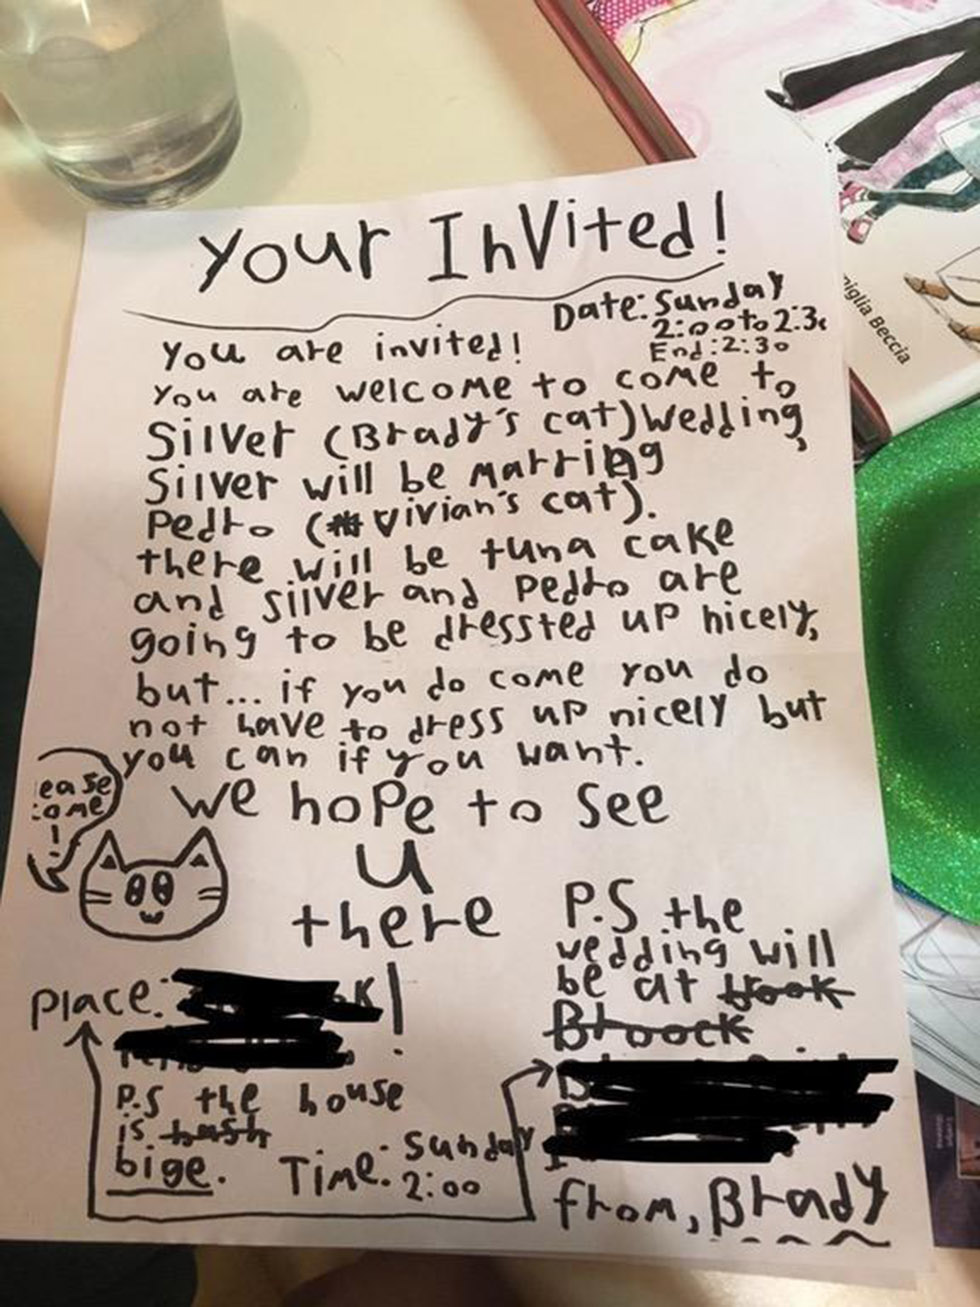 Your Invited!
Date: Sunday
2:00 to 2:30
End: 2:30
You are invited!
You are welcome to come to
Silver (Brady's cat) Wedding,
Silver will be Marring
Pedro (Vivian's cat).
there will be tuna cake
and silver and Pedro are
going to be dressted up nicely,
but... if you do come you do
not have to dress up nicely but
you can if you want.
ease
ome
!
We hope to see
u
there
P.S the
wedding will
be at book
Broock
Place:
P.S the house
is
bige.
Time: Sunday
2:00
from, Brady
niglia Beccia